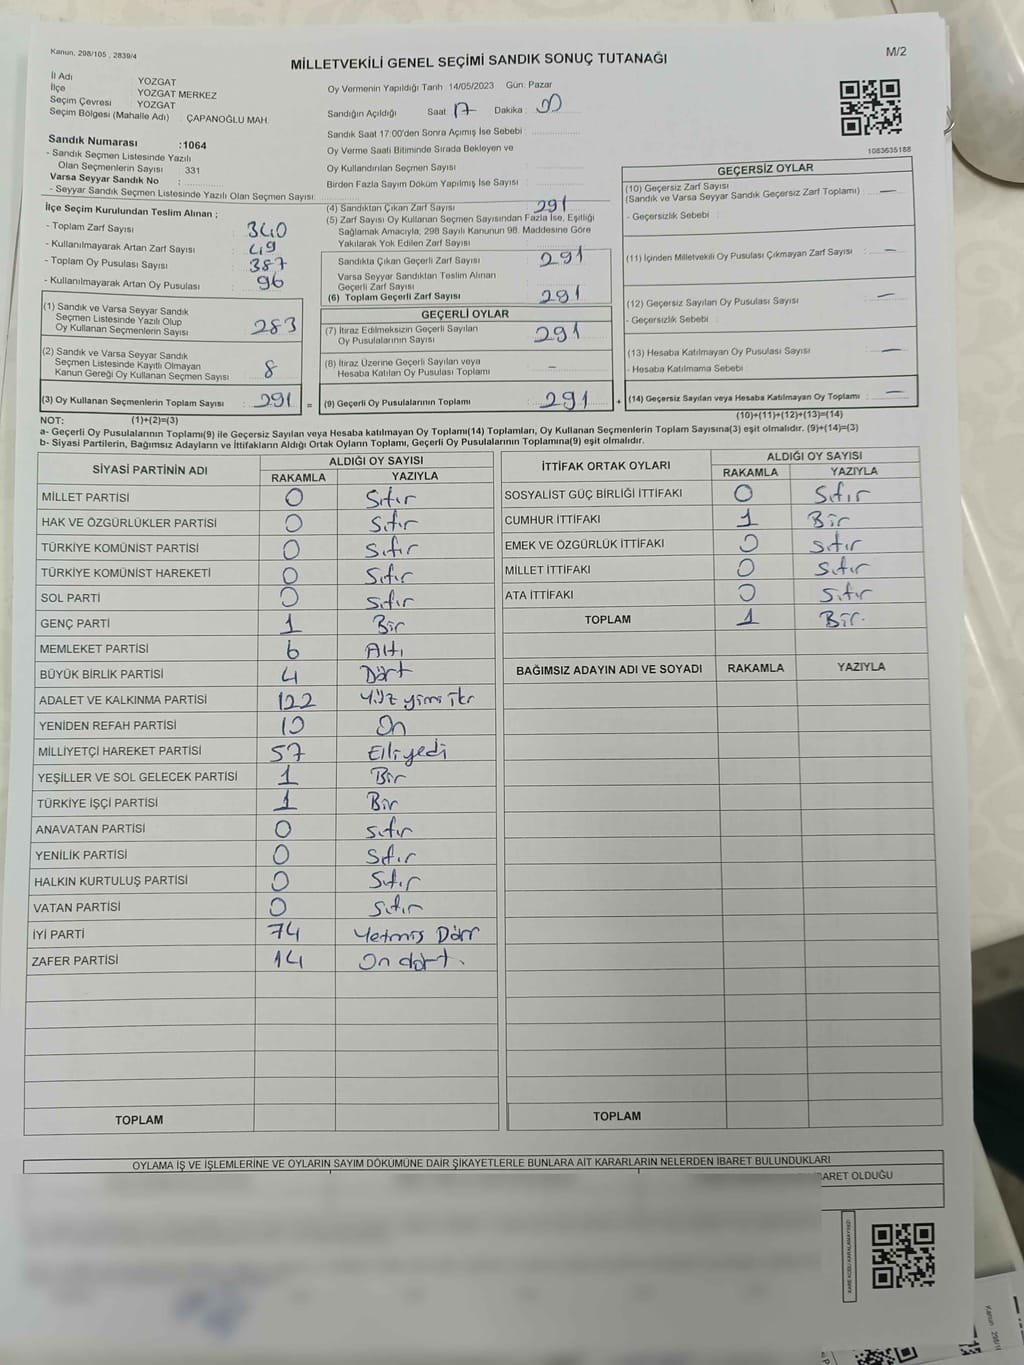 Kanun, 298/105 , 2839/4
MİLLETVEKİLİ GENEL SEÇİMİ SANDIK SONUÇ TUTANAĞI
M/2
İl Adı YOZGAT
İlçe YOZGAT MERKEZ
Seçim Çevresi YOZGAT
Seçim Bölgesi (Mahalle Adı) : ÇAPANOĞLU MAH.
Sandık Numarası :1064
- Sandık Seçmen Listesinde Yazılı
Olan Seçmenlerin Sayısı : 331
Varsa Seyyar Sandık No :
- Seyyar Sandık Seçmen Listesinde Yazılı Olan Seçmen Sayısı:
Oy Vermenin Yapıldığı Tarih 14/05/2023 Gün: Pazar
Sandığın Açıldığı Saat 17 Dakika : 00
Sandık Saat 17:00'den Sonra Açımış İse Sebebi :
Oy Verme Saati Bitiminde Sırada Bekleyen ve
Oy Kullandırılan Seçmen Sayısı :
Birden Fazla Sayım Döküm Yapılmış İse Sayısı :
1083635188
İlçe Seçim Kurulundan Teslim Alınan ;
- Toplam Zarf Sayısı : 340
- Kullanılmayarak Artan Zarf Sayısı : 49
- Toplam Oy Pusulası Sayısı : 387
- Kullanılmayarak Artan Oy Pusulası : 96
(1) Sandık ve Varsa Seyyar Sandık
Seçmen Listesinde Yazılı Olup
Oy Kullanan Seçmenlerin Sayısı : 283
(2) Sandık ve Varsa Seyyar Sandık
Seçmen Listesinde Kayıtlı Olmayan
Kanun Gereği Oy Kullanan Seçmen Sayısı : 8
(3) Oy Kullanan Seçmenlerin Toplam Sayısı : 291 =
(4) Sandıktan Çıkan Zarf Sayısı : 291
(5) Zarf Sayısı Oy Kullanan Seçmen Sayısından Fazla İse, Eşitliği
Sağlamak Amacıyla, 298 Sayılı Kanunun 98. Maddesine Göre
Yakılarak Yok Edilen Zarf Sayısı :
Sandıkta Çıkan Geçerli Zarf Sayısı : 291
Varsa Seyyar Sandıktan Teslim Alınan
Geçerli Zarf Sayısı :
(6) Toplam Geçerli Zarf Sayısı : 291
GEÇERLİ OYLAR
(7) İtiraz Edilmeksizin Geçerli Sayılan
Oy Pusulalarının Sayısı : 291
(8) İtiraz Üzerine Geçerli Sayılan veya
Hesaba Katılan Oy Pusulası Toplamı : -
(9) Geçerli Oy Pusulalarının Toplamı : 291 +
GEÇERSİZ OYLAR
(10) Geçersiz Zarf Sayısı
(Sandık ve Varsa Seyyar Sandık Geçersiz Zarf Toplamı) : -
- Geçersizlik Sebebi :
(11) İçinden Milletvekili Oy Pusulası Çıkmayan Zarf Sayısı : -
(12) Geçersiz Sayılan Oy Pusulası Sayısı : -
- Geçersizlik Sebebi :
(13) Hesaba Katılmayan Oy Pusulası Sayısı : -
- Hesaba Katılmama Sebebi :
(14) Geçersiz Sayılan veya Hesaba Katılmayan Oy Toplamı : -
NOT: (1)+(2)=(3) (10)+(11)+(12)+(13)=(14)
a- Geçerli Oy Pusulalarının Toplamı(9) ile Geçersiz Sayılan veya Hesaba katılmayan Oy Toplamı(14) Toplamları, Oy Kullanan Seçmenlerin Toplam Sayısına(3) eşit olmalıdır. (9)+(14)=(3)
b- Siyasi Partilerin, Bağımsız Adayların ve İttifakların Aldığı Ortak Oyların Toplamı, Geçerli Oy Pusulalarının Toplamına(9) eşit olmalıdır.
SİYASİ PARTİNİN ADI ALDIĞI OY SAYISI
RAKAMLA YAZIYLA
MİLLET PARTİSİ 0 Sıfır
HAK VE ÖZGÜRLÜKLER PARTİSİ 0 Sıfır
TÜRKİYE KOMÜNİST PARTİSİ 0 Sıfır
TÜRKİYE KOMÜNİST HAREKETİ 0 Sıfır
SOL PARTİ 0 Sıfır
GENÇ PARTİ 1 Bir
MEMLEKET PARTİSİ 6 Altı
BÜYÜK BİRLİK PARTİSİ 4 Dört
ADALET VE KALKINMA PARTİSİ 122 Yüz yimi iki
YENİDEN REFAH PARTİSİ 10 On
MİLLİYETÇİ HAREKET PARTİSİ 57 Elliyedi
YEŞİLLER VE SOL GELECEK PARTİSİ 1 Bir
TÜRKİYE İŞÇİ PARTİSİ 1 Bir
ANAVATAN PARTİSİ 0 Sıfır
YENİLİK PARTİSİ 0 Sıfır
HALKIN KURTULUŞ PARTİSİ 0 Sıfır
VATAN PARTİSİ 0 Sıfır
İYİ PARTİ 74 Yetmiş Dört
ZAFER PARTİSİ 14 On dört.
TOPLAM
İTTİFAK ORTAK OYLARI ALDIĞI OY SAYISI
RAKAMLA YAZIYLA
SOSYALİST GÜÇ BİRLİĞİ İTTİFAKI 0 Sıfır
CUMHUR İTTİFAKI 1 Bir
EMEK VE ÖZGÜRLÜK İTTİFAKI 0 Sıfır
MİLLET İTTİFAKI 0 Sıfır
ATA İTTİFAKI 0 Sıfır
TOPLAM 1 Bir.
BAĞIMSIZ ADAYIN ADI VE SOYADI RAKAMLA YAZIYLA
TOPLAM
OYLAMA İŞ VE İŞLEMLERİNE VE OYLARIN SAYIM DÖKÜMÜNE DAİR ŞİKAYETLERLE BUNLARA AİT KARARLARIN NELERDEN İBARET BULUNDUKLARI
BARET OLDUĞU
KARE KODU KARALAMAYINIZ!